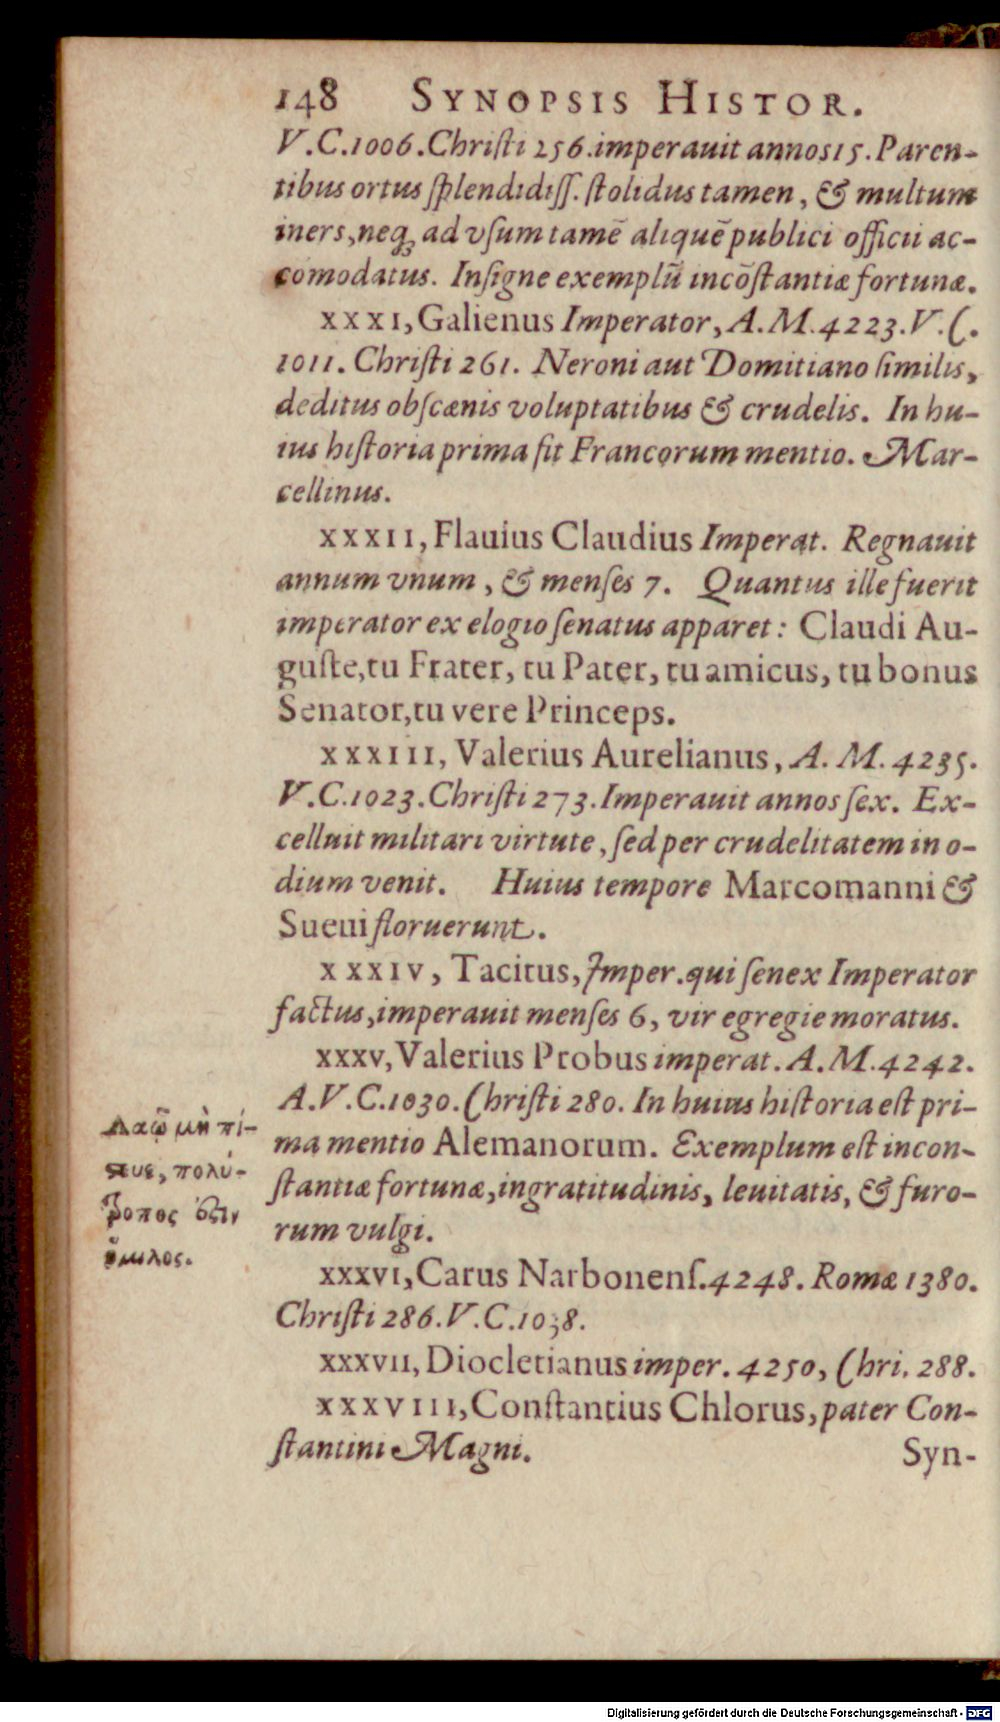 148 SYNOPSIS HISTOR.
V.C.1006.Chriſti 256.imperauit annos15.Paren-
tibus ortus ſplendidiſſ. ſtolidus tamen, & multum
iners,neq; ad vſum tamẽ aliquẽ publici officii ac-
comodatus. Inſigne exemplũ incõſtantiæ fortunæ.
XXXI, Galienus Imperator, A.M.4223.V.C.
1011. Chriſti 261. Neroni aut Domitiano ſimilis,
deditus obſcænis voluptatibus & crudelis. In hu-
ius hiſtoria prima fit Francorum mentio. Mar-
cellinus.
XXXII, Flauius Claudius Imperat. Regnauit
annum vnum, & menſes 7. Quantus ille fuerit
imperator ex elogio ſenatus apparet: Claudi Au-
guſte,tu Frater, tu Pater, tu amicus, tu bonus
Senator,tu vere Princeps.
XXXIII, Valerius Aurelianus, A. M. 4235.
V.C.1023.Chriſti 273.Imperauit annos ſex. Ex-
celluit militari virtute, ſed per crudelitatem in o-
dium venit. Huius tempore Marcomanni &
Sueui floruerunt.
XXXIV, Tacitus, Imper.qui ſenex Imperator
factus,imperauit menſes 6, vir egregie moratus.
XXXV, Valerius Probus imperat. A.M.4242.
A.V.C.1030.Chriſti 280. In huius hiſtoria eſt pri-
ma mentio Alemanorum. Exemplum eſt incon-
ſtantiæ fortunæ,ingratitudinis, leuitatis, & furo-
rum vulgi.
Λαῷ μὴ πί-
ϛευε, πολύ-
τροπος ὅϛιν
ὅμιλος.
XXXVI, Carus Narbonenſ.4248. Romæ 1380.
Chriſti 286.V.C.1038.
XXXVII, Diocletianus imper. 4250, Chri. 288.
XXXVIII, Conſtantius Chlorus, pater Con-
ſtantini Magni.
Syn-
Digitalisierung gefördert durch die Deutsche Forschungsgemeinschaft - DFG